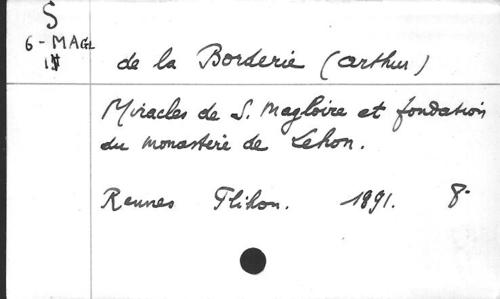 S
6 - MAGL
de la Borderie (Arthur)
Miracles de S. Magloire et fondation
du monastère de Lehon.
Rennes Plihon. 1891. 8°